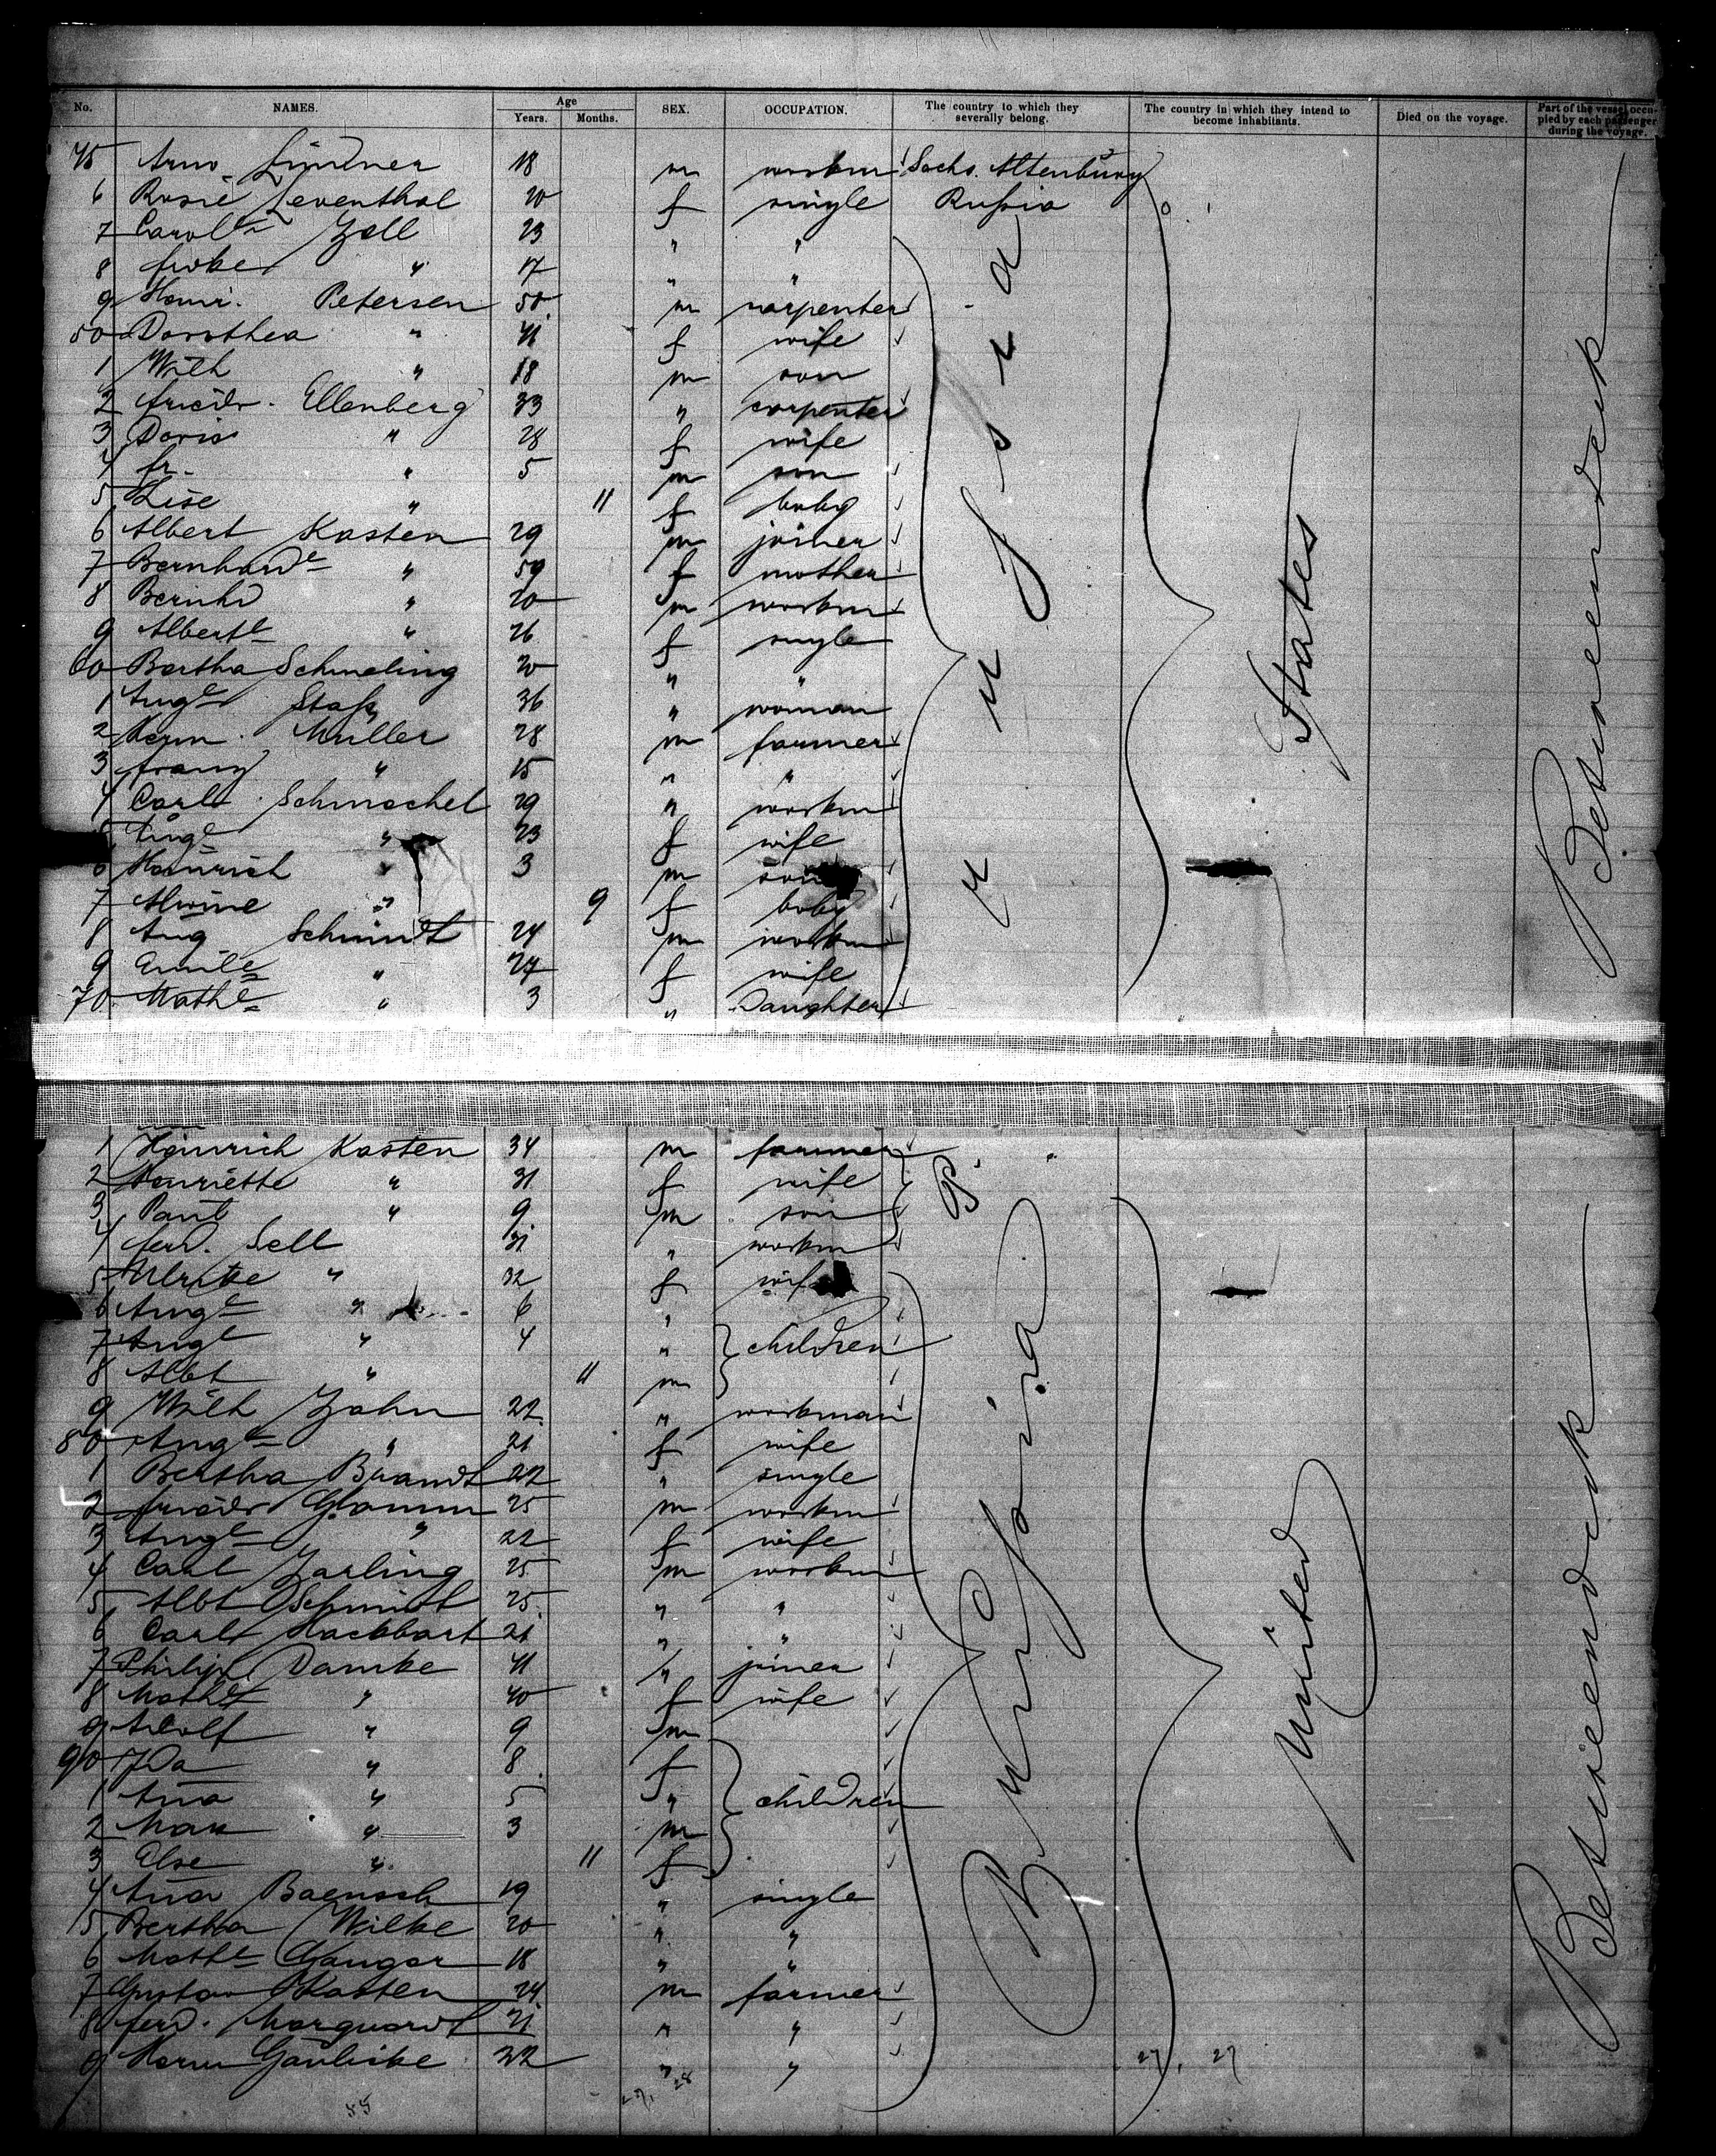 No. NAMES. Age Years. Months. SEX. OCCUPATION. The country to which they severally belong. The country in which they intend to become inhabitants. Died on the voyage. Part of the vessel occupied by each passenger during the voyage.
45 Arno Lindner 18 m workm Sachs. Altenburg
6 Rosie Leventhal 20 f single Rußia
7 Carole Zell 23 " "
8 " 17 " "
9 Heinr. Petersen 50 m carpenter
50 Dorothea " 41 f wife
1 Wilh " 18 m son
2 Friedr. Ellenberg 33 " carpenter
3 Doris " 28 f wife
4 fr. " 5 m son
5 Lise " 11 f baby
6 Albert Kasten 29 m joiner
7 Bernharde " 59 f mother
8 Bernhd " 20 m workm
9 Alberte " 26 f single
60 Bertha Schmeling 20 " "
1 Auge 36 " woman
2 Herm. Muller 28 m farmer
3 Franz " 15 " "
4 Carl Schmechel 29 " workm
5 Auge " 23 f wife
6 Heinrich " 3 m son
7 Alwine " 9 f baby
8 Aug Schmidt 24 m workm
9 Emile " 27 f wife
70 Mathe " 3 " Daughter
1 Heinrich Kasten 34 m farmer
2 Henriette " 31 f wife
3 Paul " 9 m son
4 ferd. Sell 31 " workm
5 Ulrike " 32 f wife
6 Auge " 6 "
7 Auge " 4 " children
8 Albt " 11 m
9 Wilh Zahn 22 " workman
80 Auge " 21 f wife
1 Bertha Brandt 22 " single
2 Friedr Glamm 25 m workm
3 Auge " 22 f wife
4 Carl Zarling 25 m workm
5 Albt Schmidt 25 " "
6 Carl Hackbart 21 " "
7 Philipp Damke 41 " joiner
8 Mathe " 40 f wife
9 Adolf " 9 m
90 Ida " 8 f
1 Ana " 5 " children
2 Max " 3 m
3 Else " 11 f
4 Ana Baensch 19 " single
5 Bertha Wilke 20 " "
6 Mathe 18 " "
7 Gustav Kasten 24 m farmer
8 ferd. Marquardt 21 " "
9 Herm 32 " "
United States
Betweendeck
Betweendeck